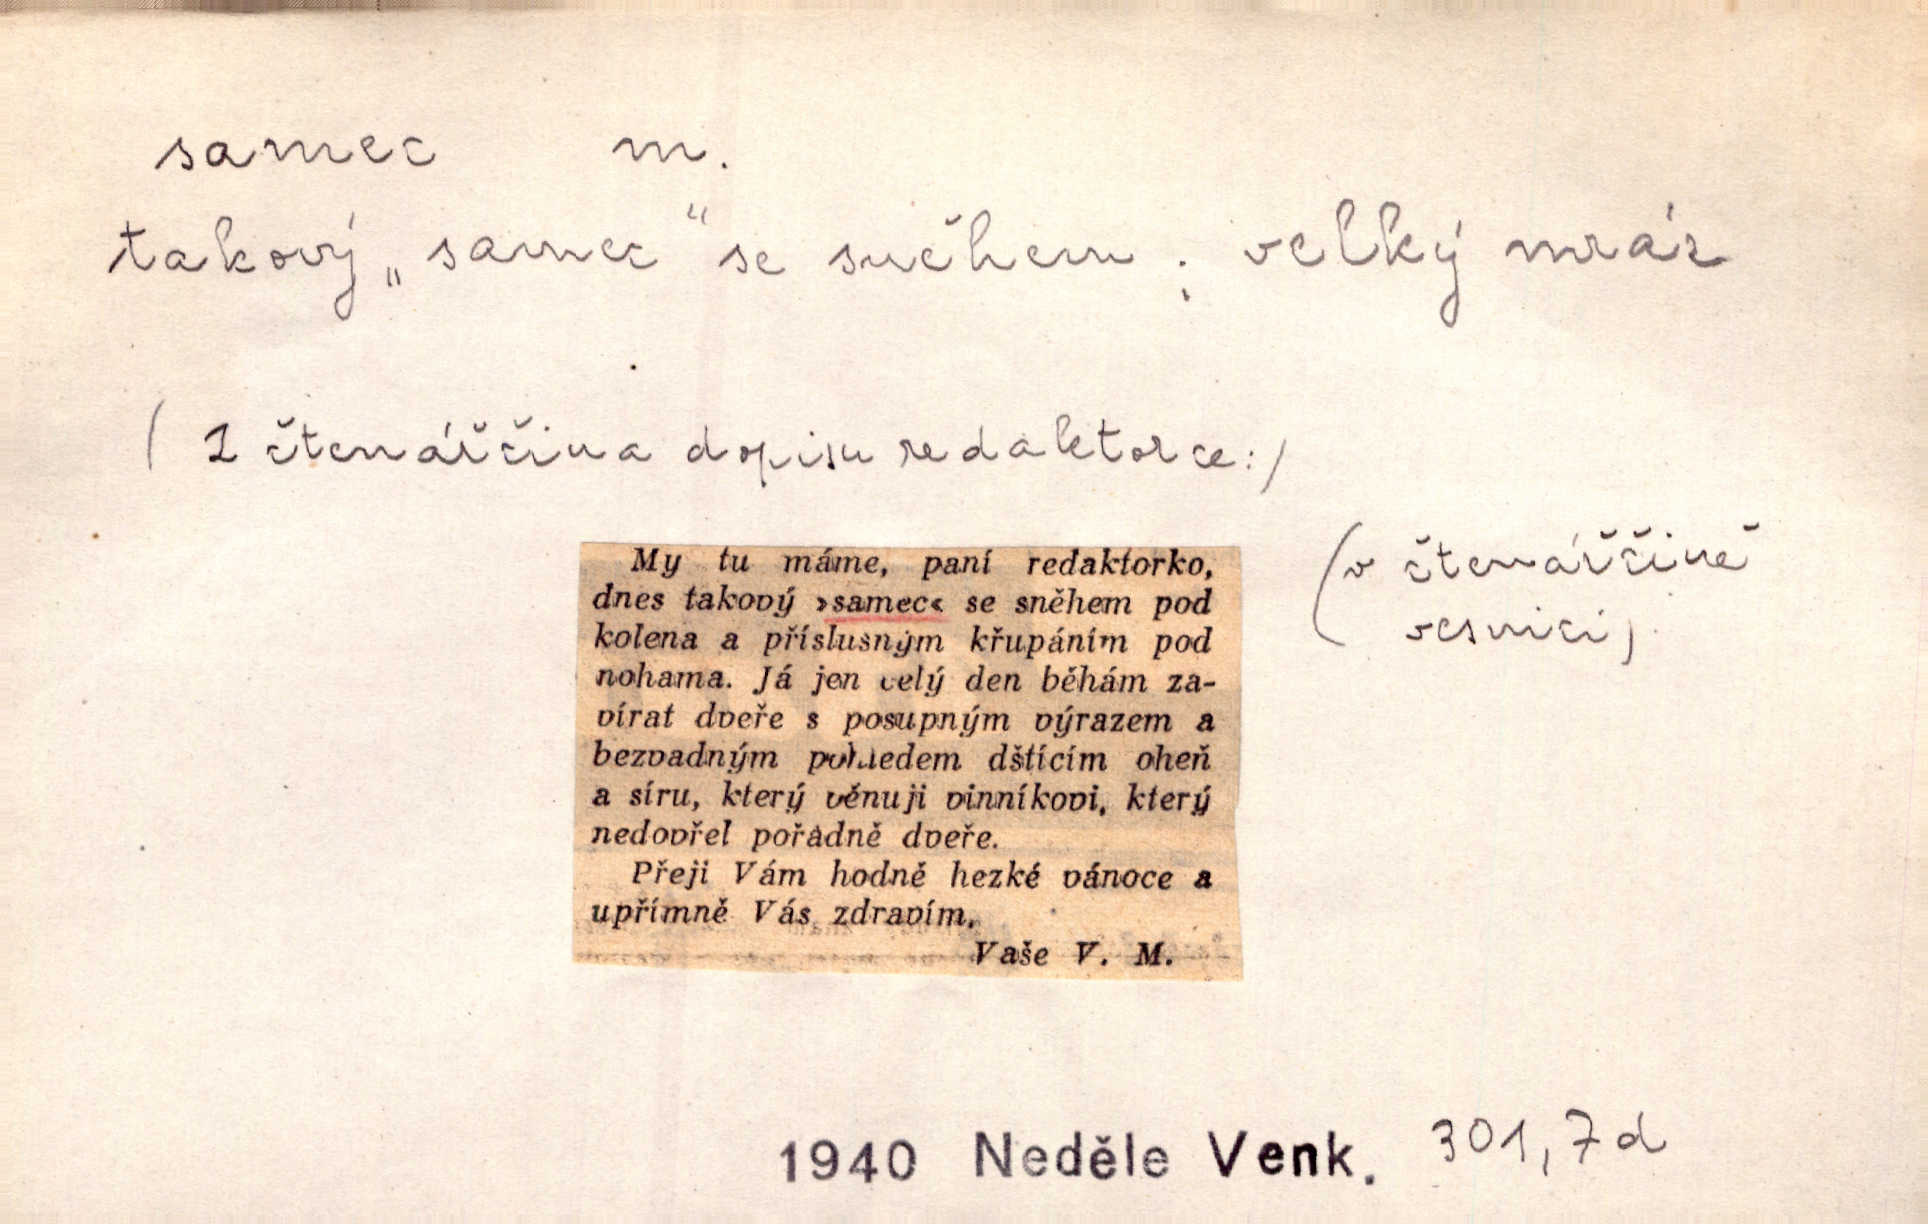 samec m.
takový „samec“ se sněhem : velký mráz
( Z čtenářčina dopisu redaktorce:)
My tu máme, paní redaktorko,
dnes takový »samec« se sněhem pod
kolena a příslusným křupáním pod
nohama. Já jen celý den běhám za-
vírat dveře s posupným výrazem a
bezvadným pohledem dštícím oheň
a síru, který věnuji vinníkovi, který
nedovřel pořádně dveře.
Přeji Vám hodně hezké vánoce a
upřímně Vás zdravím.
Vaše V. M.
(v čtenářčině
vesnici)
1940 Neděle Venk. 301,7d